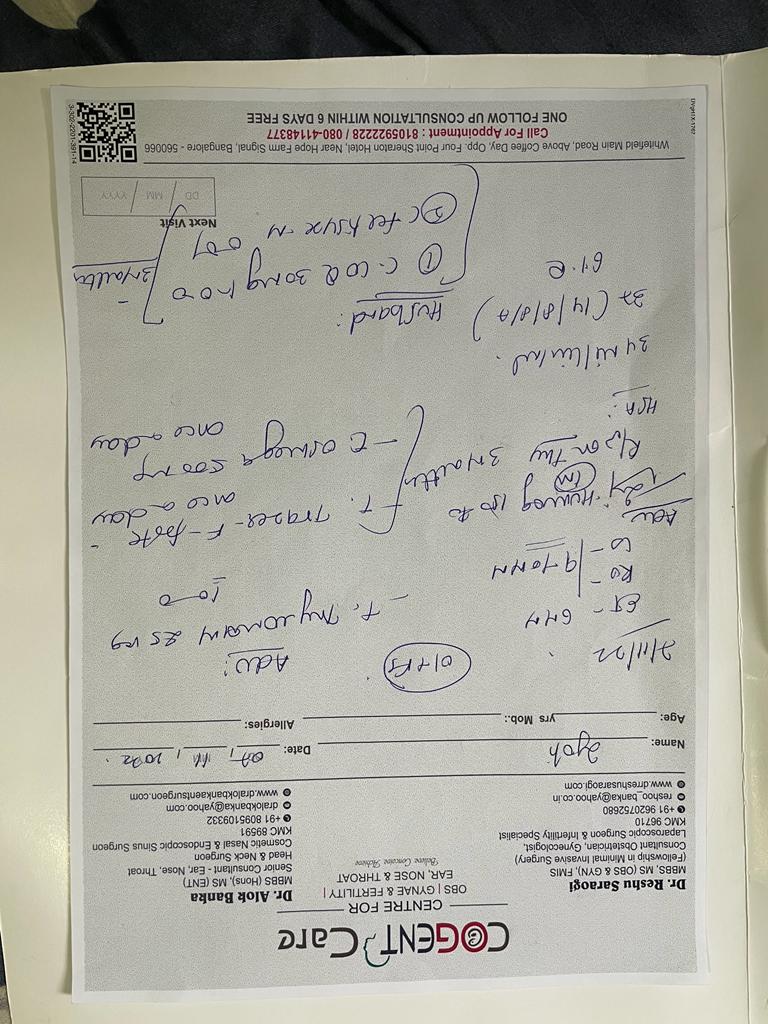 COGENT Care
CENTRE FOR
OBS | GYNAE & FERTILITY |
EAR, NOSE & THROAT
Believe Conceive Achieve
Dr. Reshu Saraogi
MBBS, MS (OBS & GYN), FMIS
(Fellowship in Minimal Invasive Surgery)
Consultant Obstetrician, Gynecologist,
Laparoscopic Surgeon & Infertility Specialist
KMC 96710
+91 9620752680
reshoo_banka@yahoo.co.in
www.drreshusaraogi.com
Dr. Alok Banka
MBBS (Hons), MS (ENT)
Senior Consultant - Ear, Nose, Throat
Head & Neck Surgeon
Cosmetic Nasal & Endoscopic Sinus Surgeon
KMC 89591
+91 8095109332
dralokbanka@yahoo.com
www.dralokbankaentsurgeon.com
Name: Jyoti Date: 07, 11, 2022.
Age: yrs Mob.: Allergies:
7/11/22
ET - 6MM
RO -
LO -
Adv
Inj. Humog 150
IM
R/v on Thu
HSA:
34 Million/ml.
37 (14/8/8/7)
6%
Adv:
- T. Thyronorm 25
100
T. Trazer-F-forte
once a day
- C. Osmega 500 mg
once a day
Husband:
① C. COQ 30mg 1-0-0
② C fertisure-M 001
Next Visit
DD / MM / YYYY
Whitefield Main Road, Above Coffee Day, Opp. Four Point Sheraton Hotel, Near Hope Farm Signal, Bangalore - 560066
Call For Appointment : 8105922228 / 080-41148377
ONE FOLLOW UP CONSULTATION WITHIN 6 DAYS FREE